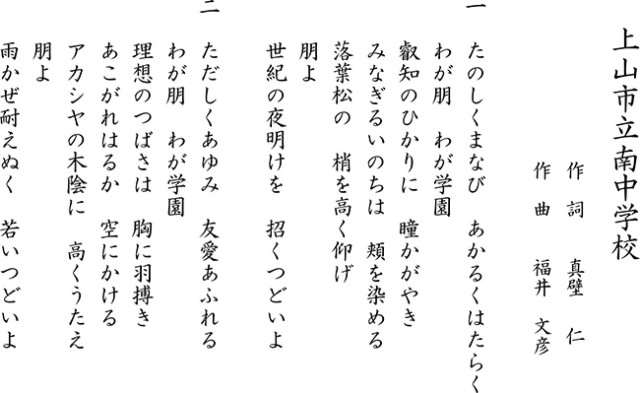 上山市立南中学校
作詞 真壁 仁
作曲 福井 文彦
一
たのしくまなび あかるくはたらく
わが朋 わが学園
叡知のひかりに 瞳かがやき
みなぎるいのちは 頬を染める
落葉松の 梢を高く仰げ
朋よ
世紀の夜明けを 招くつどいよ
二
ただしくあゆみ 友愛あふれる
わが朋 わが学園
理想のつばさは 胸に羽搏き
あこがれはるか 空にかける
アカシヤの木陰に 高くうたえ
朋よ
雨かぜ耐えぬく 若いつどいよ